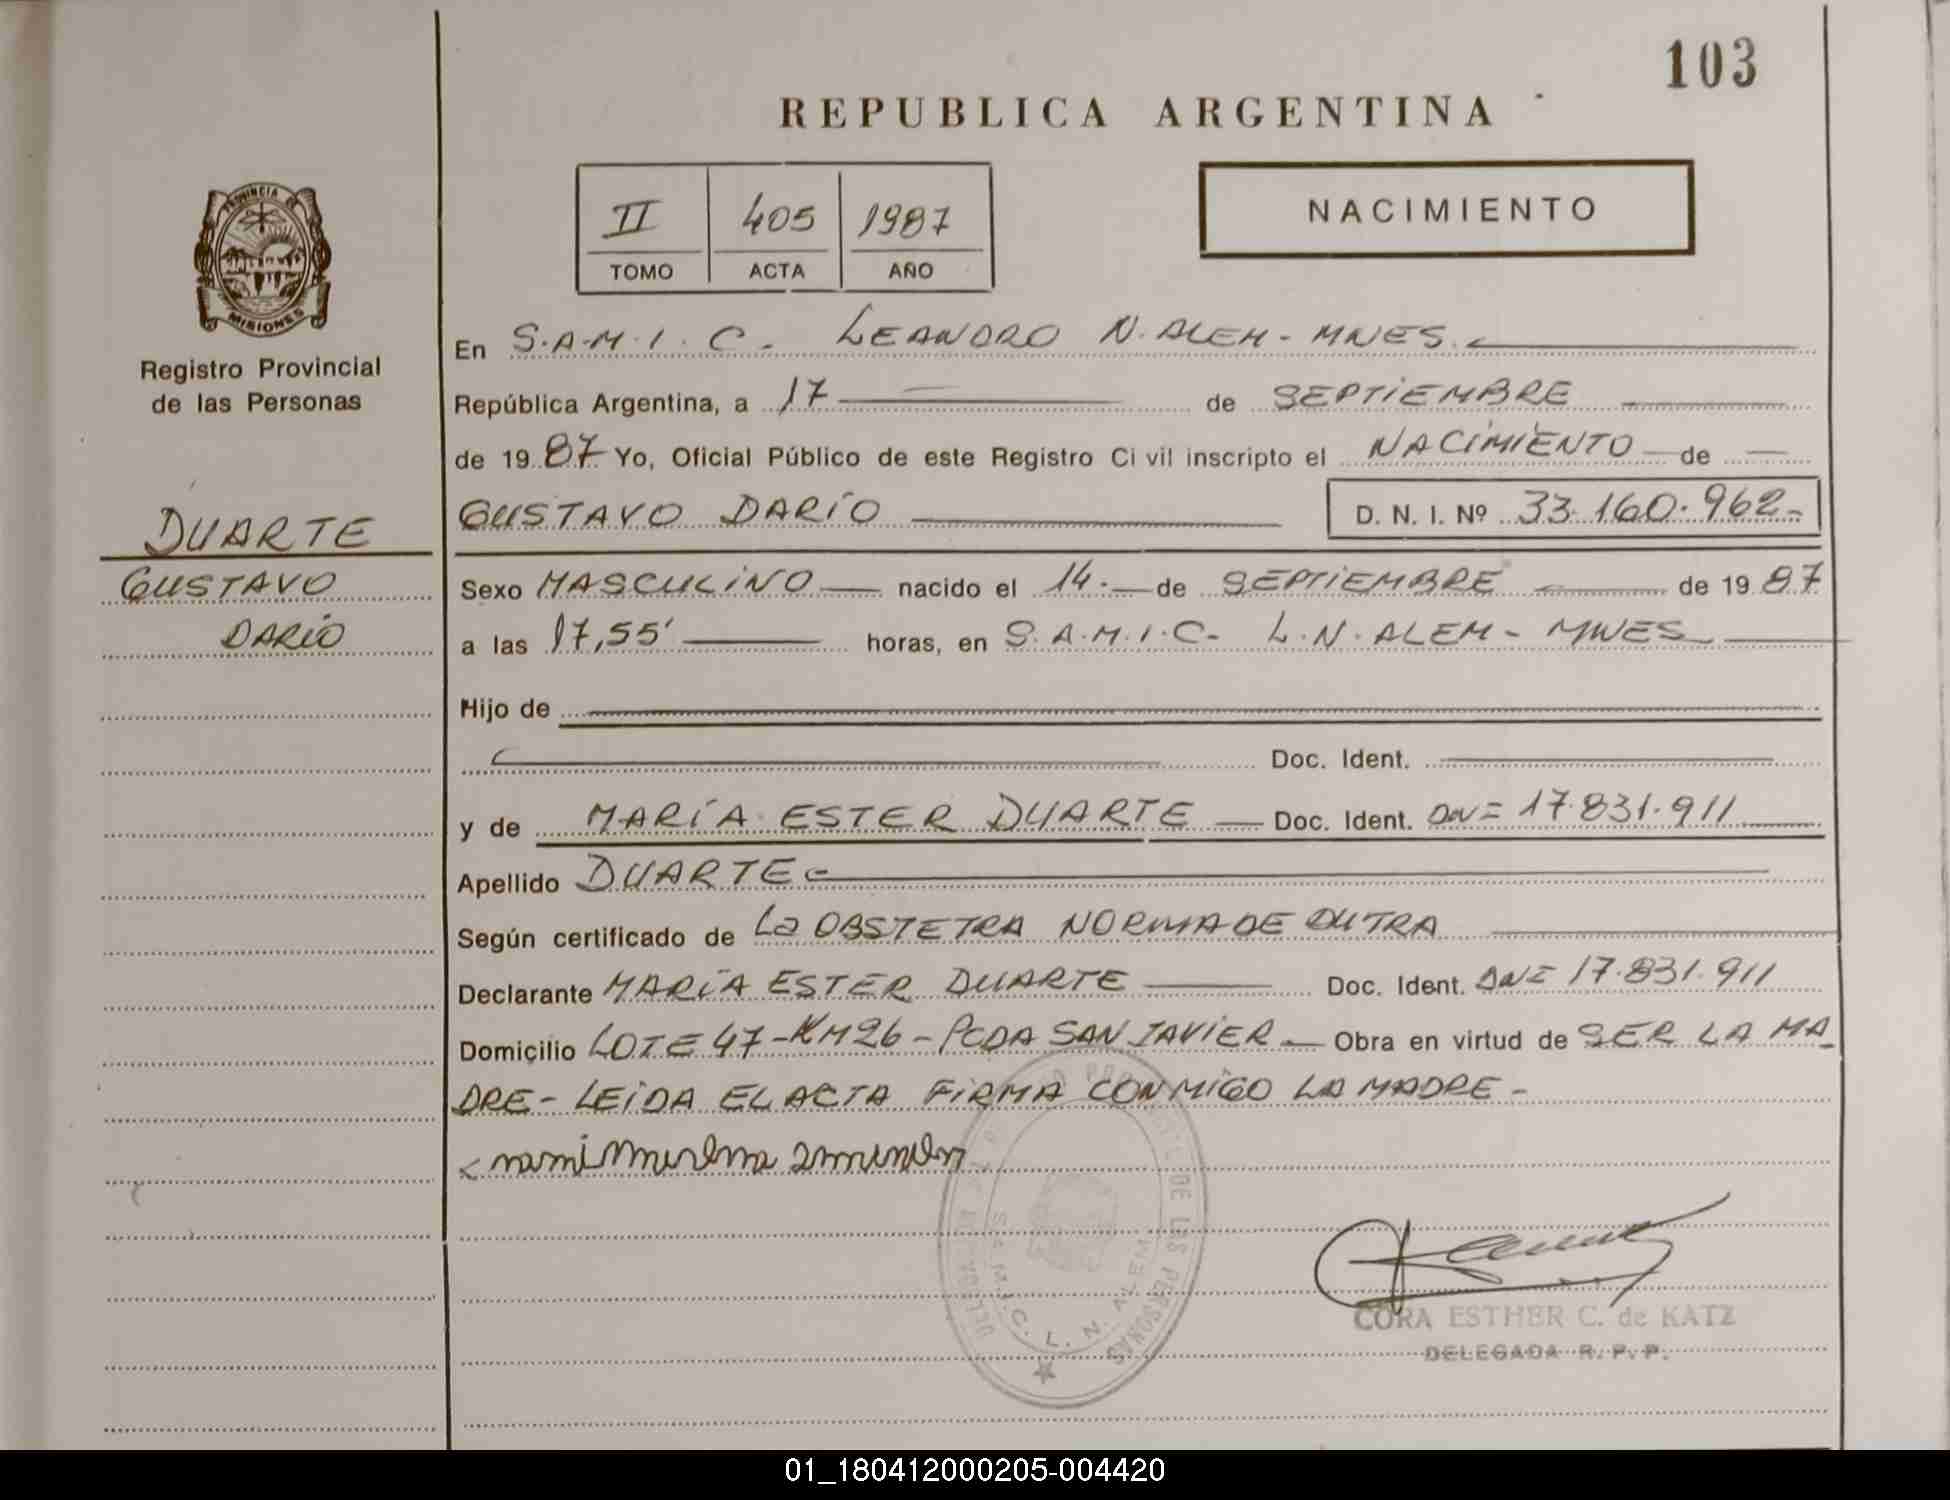 103
REPUBLICA ARGENTINA
PROVINCIA DE
MISIONES
Registro Provincial
de las Personas
II 405 1987
TOMO ACTA AÑO
NACIMIENTO
En S.A.M.I.C. LEANDRO N. ALEM - MNES.
República Argentina, a 17 de SEPTIEMBRE
de 1987 Yo, Oficial Público de este Registro Civil inscripto el NACIMIENTO de
GUSTAVO DARÍO D. N. I. Nº 33.160.962-
DUARTE
GUSTAVO
DARÍO
Sexo MASCULINO nacido el 14. de SEPTIEMBRE de 1987
a las 17,55' horas, en S.A.M.I.C- L.N. ALEM - MNES
Hijo de
Doc. Ident.
y de MARÍA ESTER DUARTE Doc. Ident. 17.831.911
Apellido DUARTE
Según certificado de La OBSTETRA NORMA DE DUTRA
Declarante MARÍA ESTER DUARTE Doc. Ident. 17.831.911
Domicilio LOTE 47 - KM 26 - PCDA SAN JAVIER Obra en virtud de SER LA MA
DRE - LEIDA EL ACTA FIRMA CONMIGO LA MADRE -
DE LAS PERSONAS
S.A.M.I.C. L. N. ALEM
CORA ESTHER C. de KATZ
DELEGADA R. P. P.
01_180412000205-004420